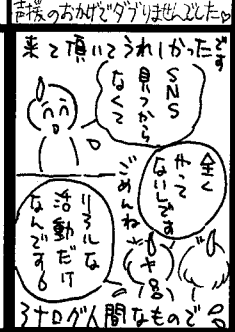 声援のおかげでダブりませんでした♡
来て頂いてうれしかったです
SNS
見つから
なくて
ごめんね
全く
やって
ないんです
リアルな
活動だけ
なんです
アナログ人間なもので